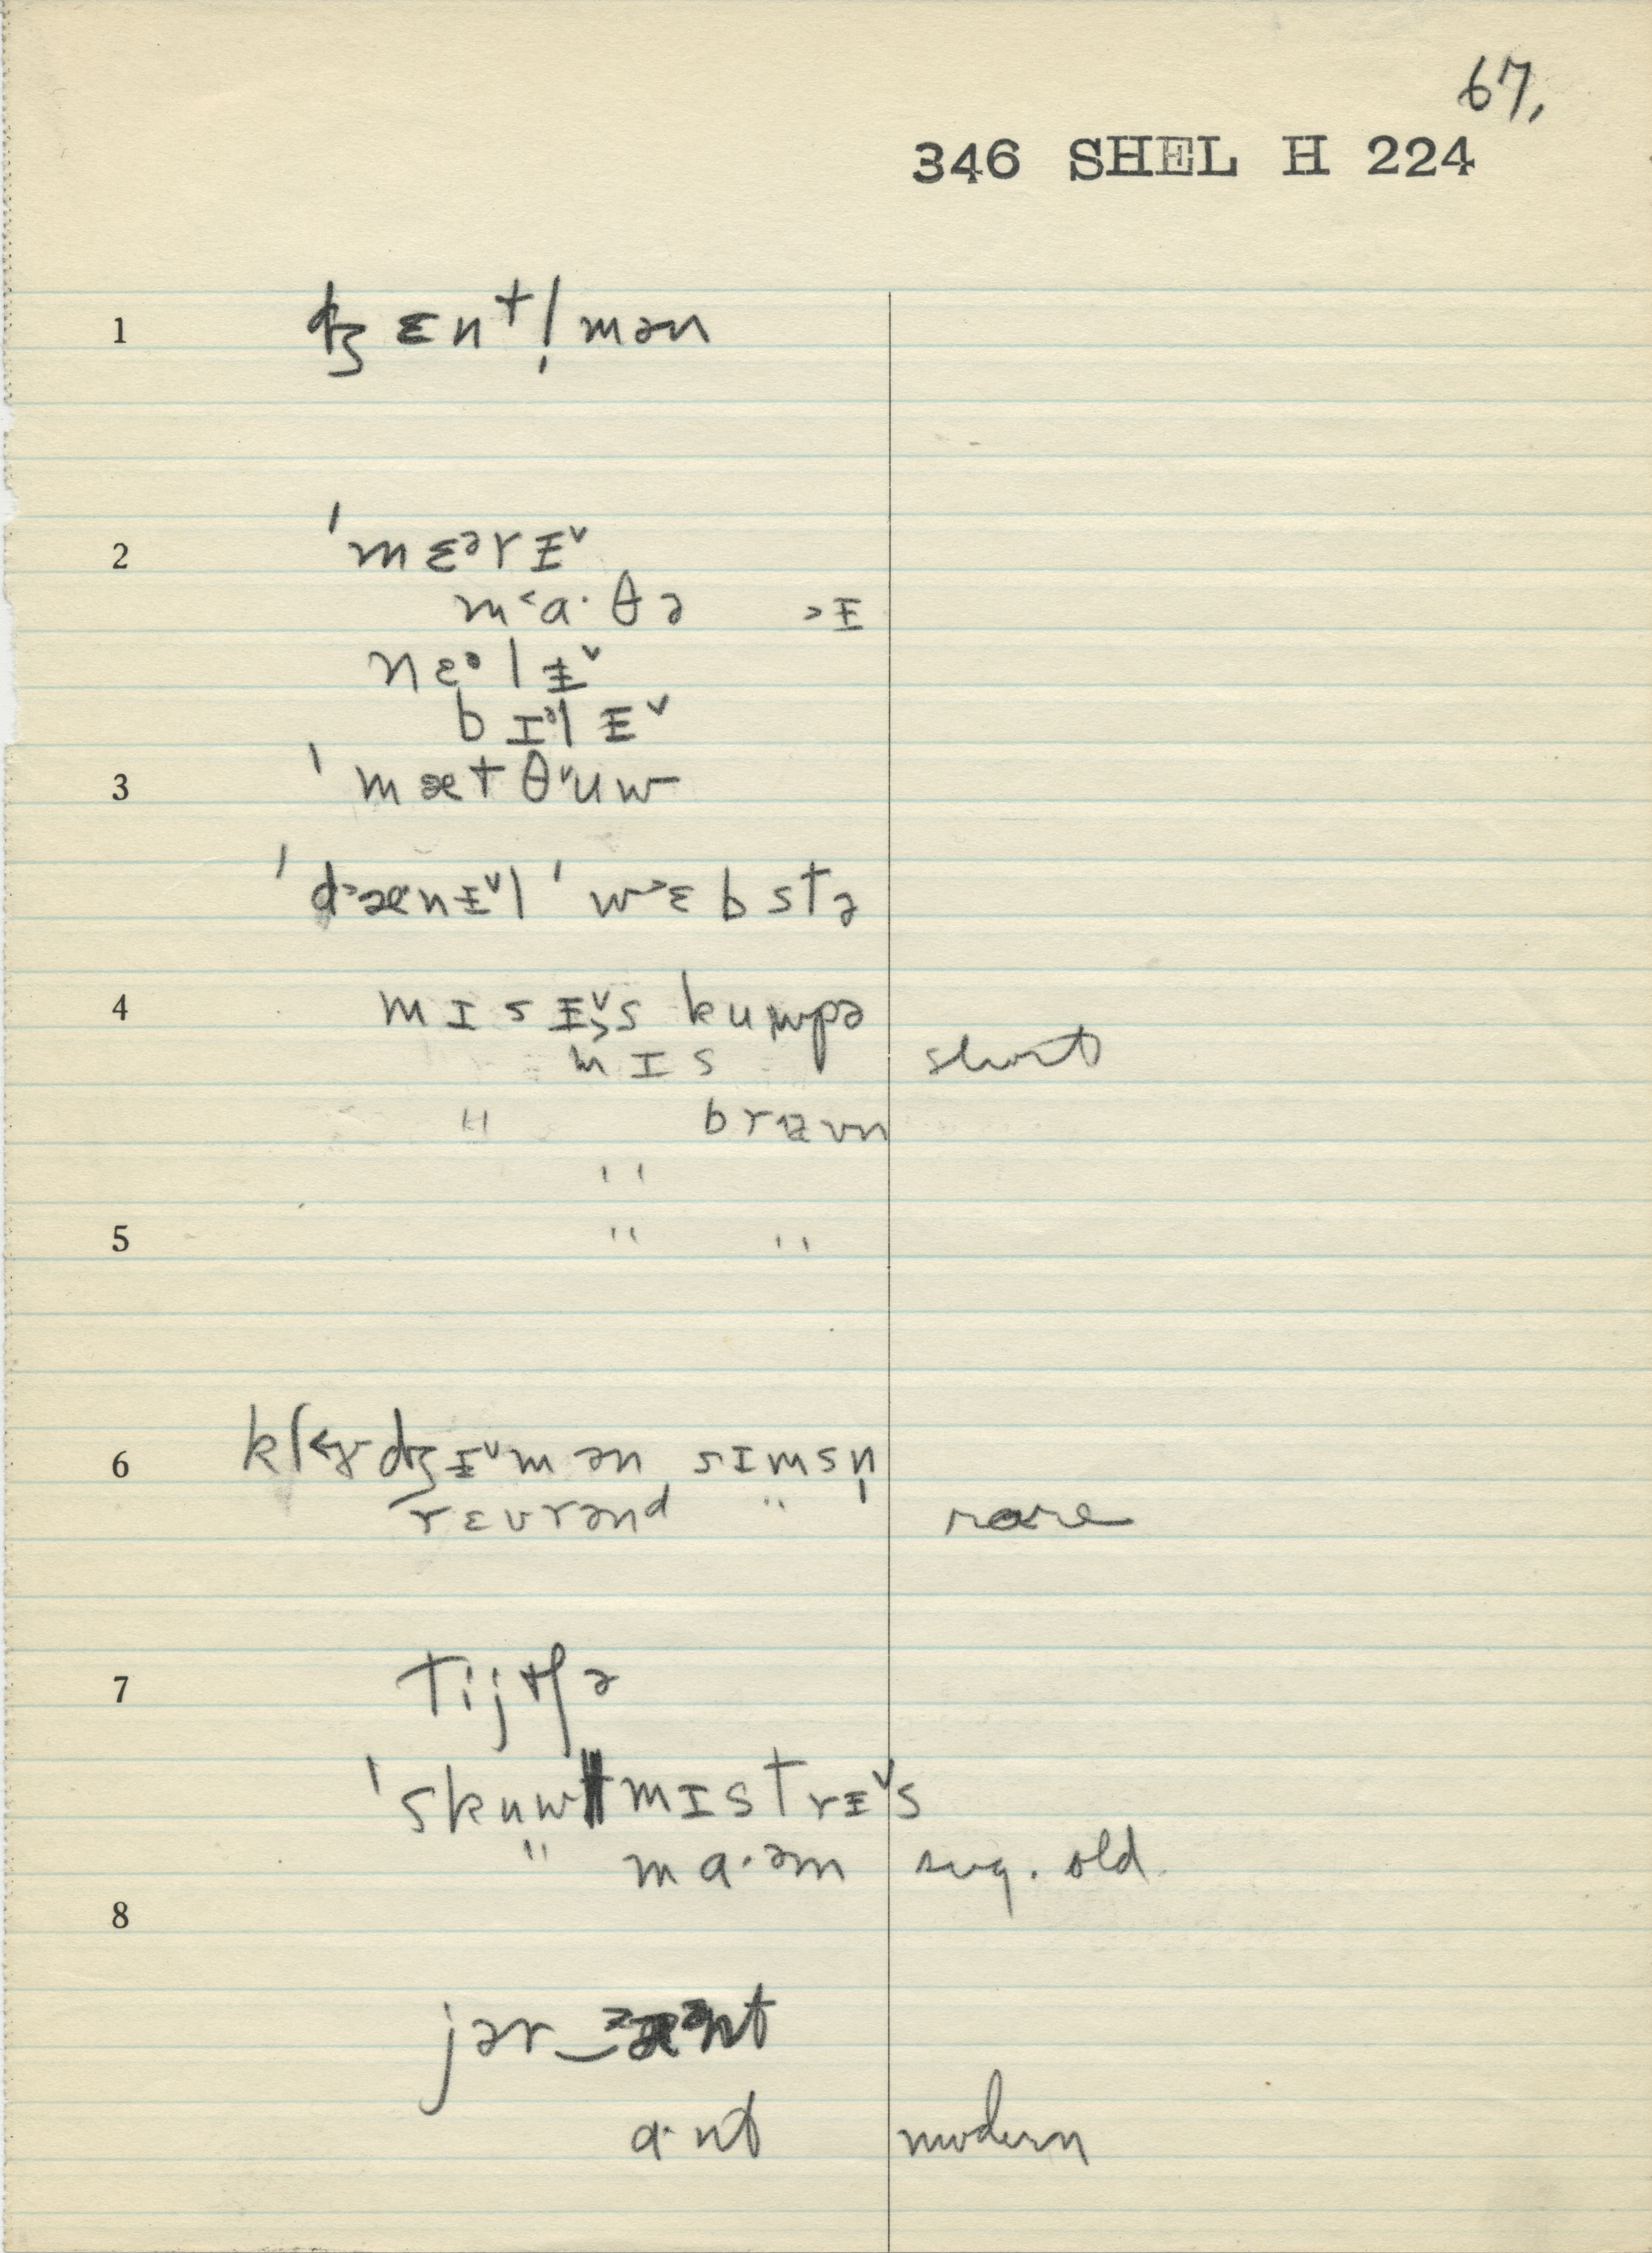 67.
346 SHEL H 224
1 ʤɛntl̩mən
2 ˈmɛᵊrɨ˅
m˂a·θə ˃ɨ
nɛᵊlɨ˅
bɪᵊlɨ˅
3 ˈmætθ˅uw
ˈd˃ænɨ˅l ˈw˃ɛbstə
4 mɪsɨ˅˃s kuwpə
mɪs short
" braʊn
"
5 " "
6 kl˂ɤdʒɨ˅mən sɪmsn̩
rɛvrənd " rare
7 tijtʃə
ˈskuwlmɪstrɨ˅s
" ma·əm sug. old.
8
jər‿ænt
a·nt modern